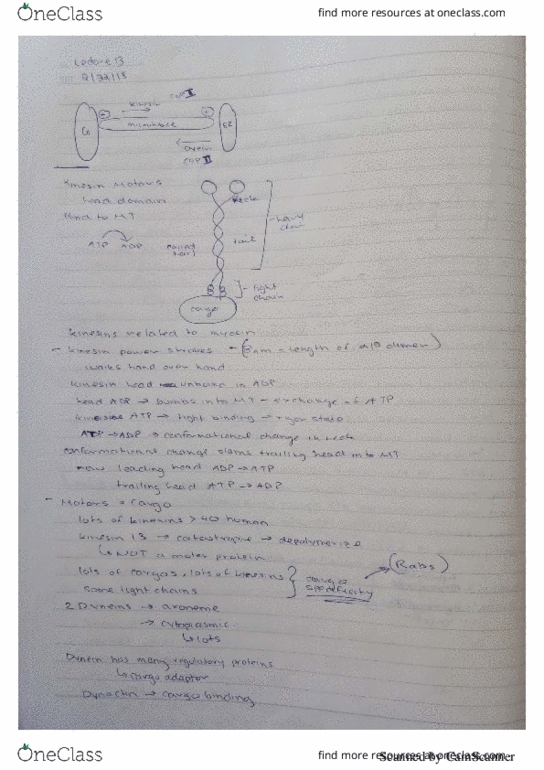 OneClass
find more resources at oneclass.com
Lecture 13
2/22/18
COP I
kinesin
- +
Go microtubule ER
dynein
COP II
Kinesin Motors
neck
head domain
bind to MT
heavy chain
ATP ADP
coiled
tail
light chain
cargo
kinesins related to myosin
- kinesin power strokes - (8nm = length of α/β dimer)
walks hand over hand
kinesin head unbound in ADP
head ADP → bumps into MT - exchange of ATP
ATP → tight binding → rigor state
ATP → ADP → conformational change in neck
conformational change slams trailing head into MT
now leading head ADP → ATP
trailing head ATP → ADP
- Motors + Cargo
lots of kinesins > 40 human
kinesin 13 → catastrophe → depolymerize
↳ NOT a motor protein
lots of cargos, lots of kinesins } cargo specificity → (Rabs)
some light chains
2 Dyneins → axoneme
→ cytoplasmic
↳ lots
Dynein has many regulatory proteins
↳ cargo adaptor
Dynactin → cargo binding
OneClass
find more resources at oneclass.com
Scanned by CamScanner